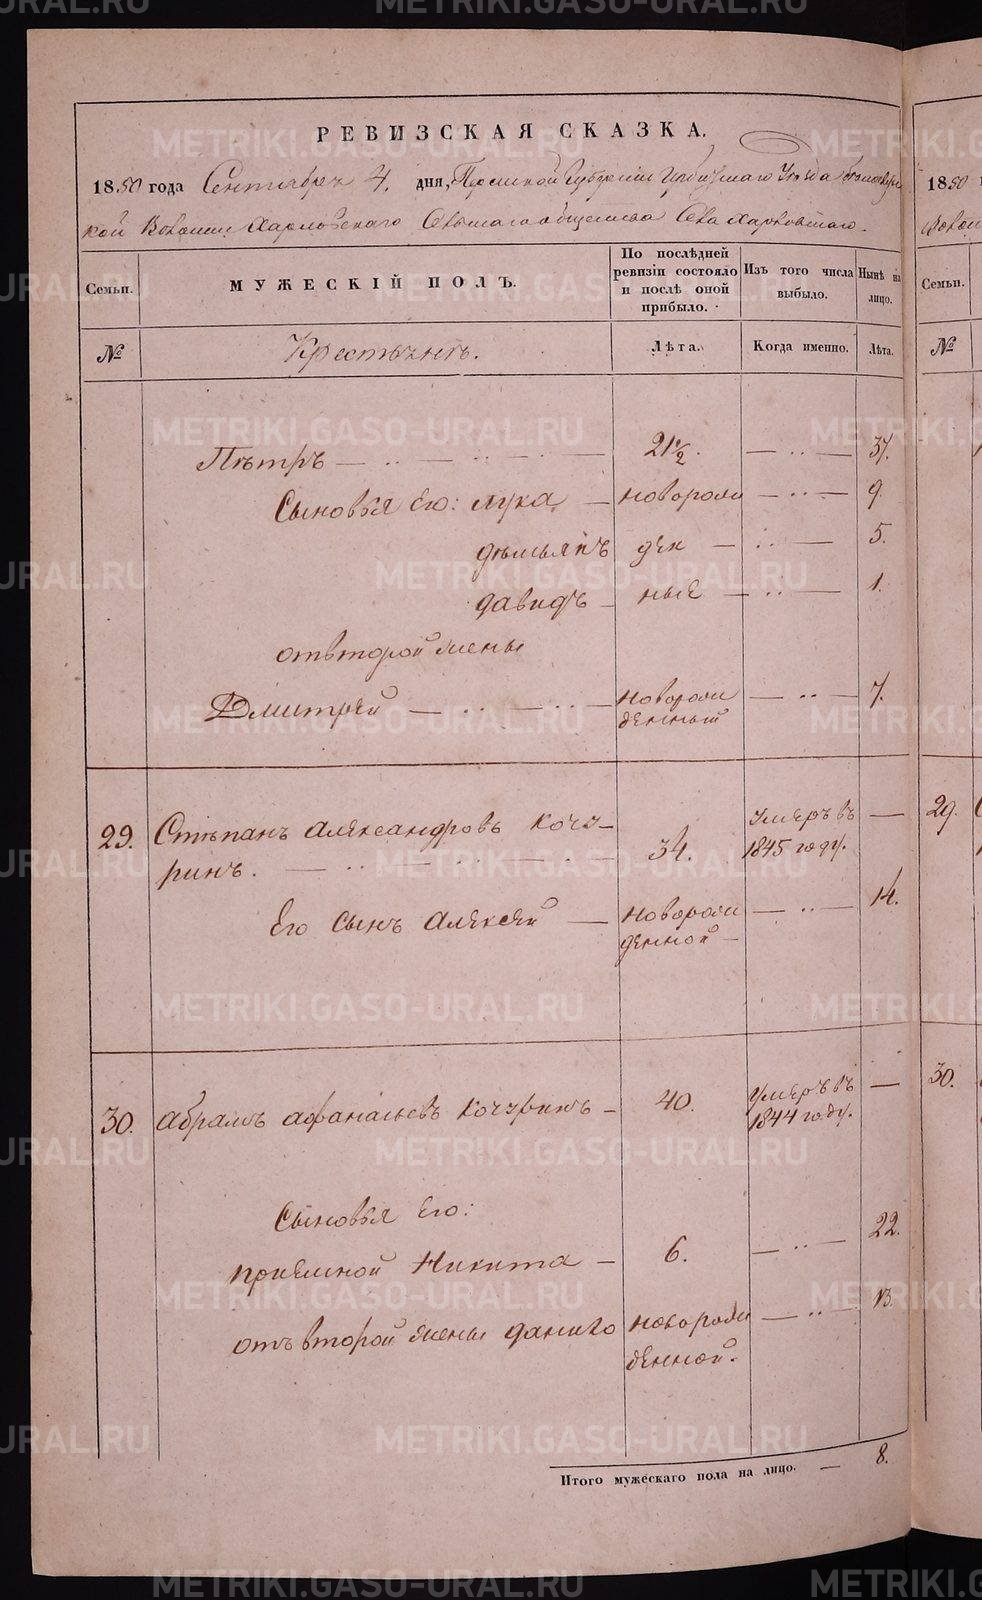 РЕВИЗСКАЯ СКАЗКА.
1850 года Сентября 4. дня, Пермской Губернии Ирбитскаго Уѣзда
кой Волости Харловскаго Сельскаго общества Села Харловскаго.
Семьи. МУЖЕСКІЙ ПОЛЪ. По послѣдней ревизіи состояло и послѣ оной прибыло. Изъ того числа выбыло. Нынѣ на лицо.
№ Крестьянъ. Лѣта. Когда именно. Лѣта.
Пѣтръ — 21½. — 37.
Сыновья Его: лука — новорож — 9.
дѣмьянъ ден — 5.
давидъ — ные — 1.
отъ второй жены
Дмитрей — новорож — 7.
денный
29. Стѣпанъ Александровъ кочу- 34. Умеръ въ —
ринъ. — 1845 году.
Его Сынъ Алексей — новорож — 14.
денной —
30. Абрамъ Афанасьевъ Кочуринъ — 40. Умеръ въ —
1844 году.
Сыновья Его:
приемной Никита — 6. — 22.
отъ второй жены Данило новорож — 13.
денной.
Итого мужескаго пола на лицо. — 8.
1850
Волост
Семьи.
№
29.
30.
METRIKI.GASO-URAL.RU